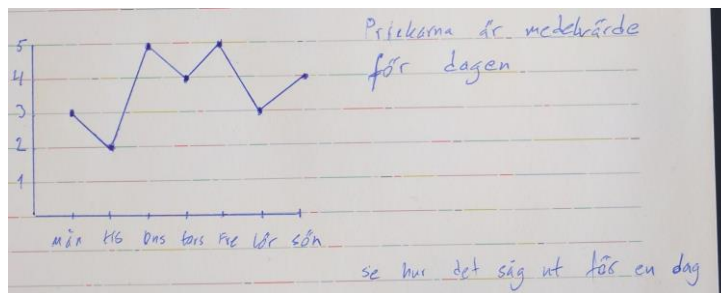 Prickarna är medelvärde
för dagen
5
4
3
2
1
mån tis ons tors Fre lör sön
se hur det såg ut för en dag